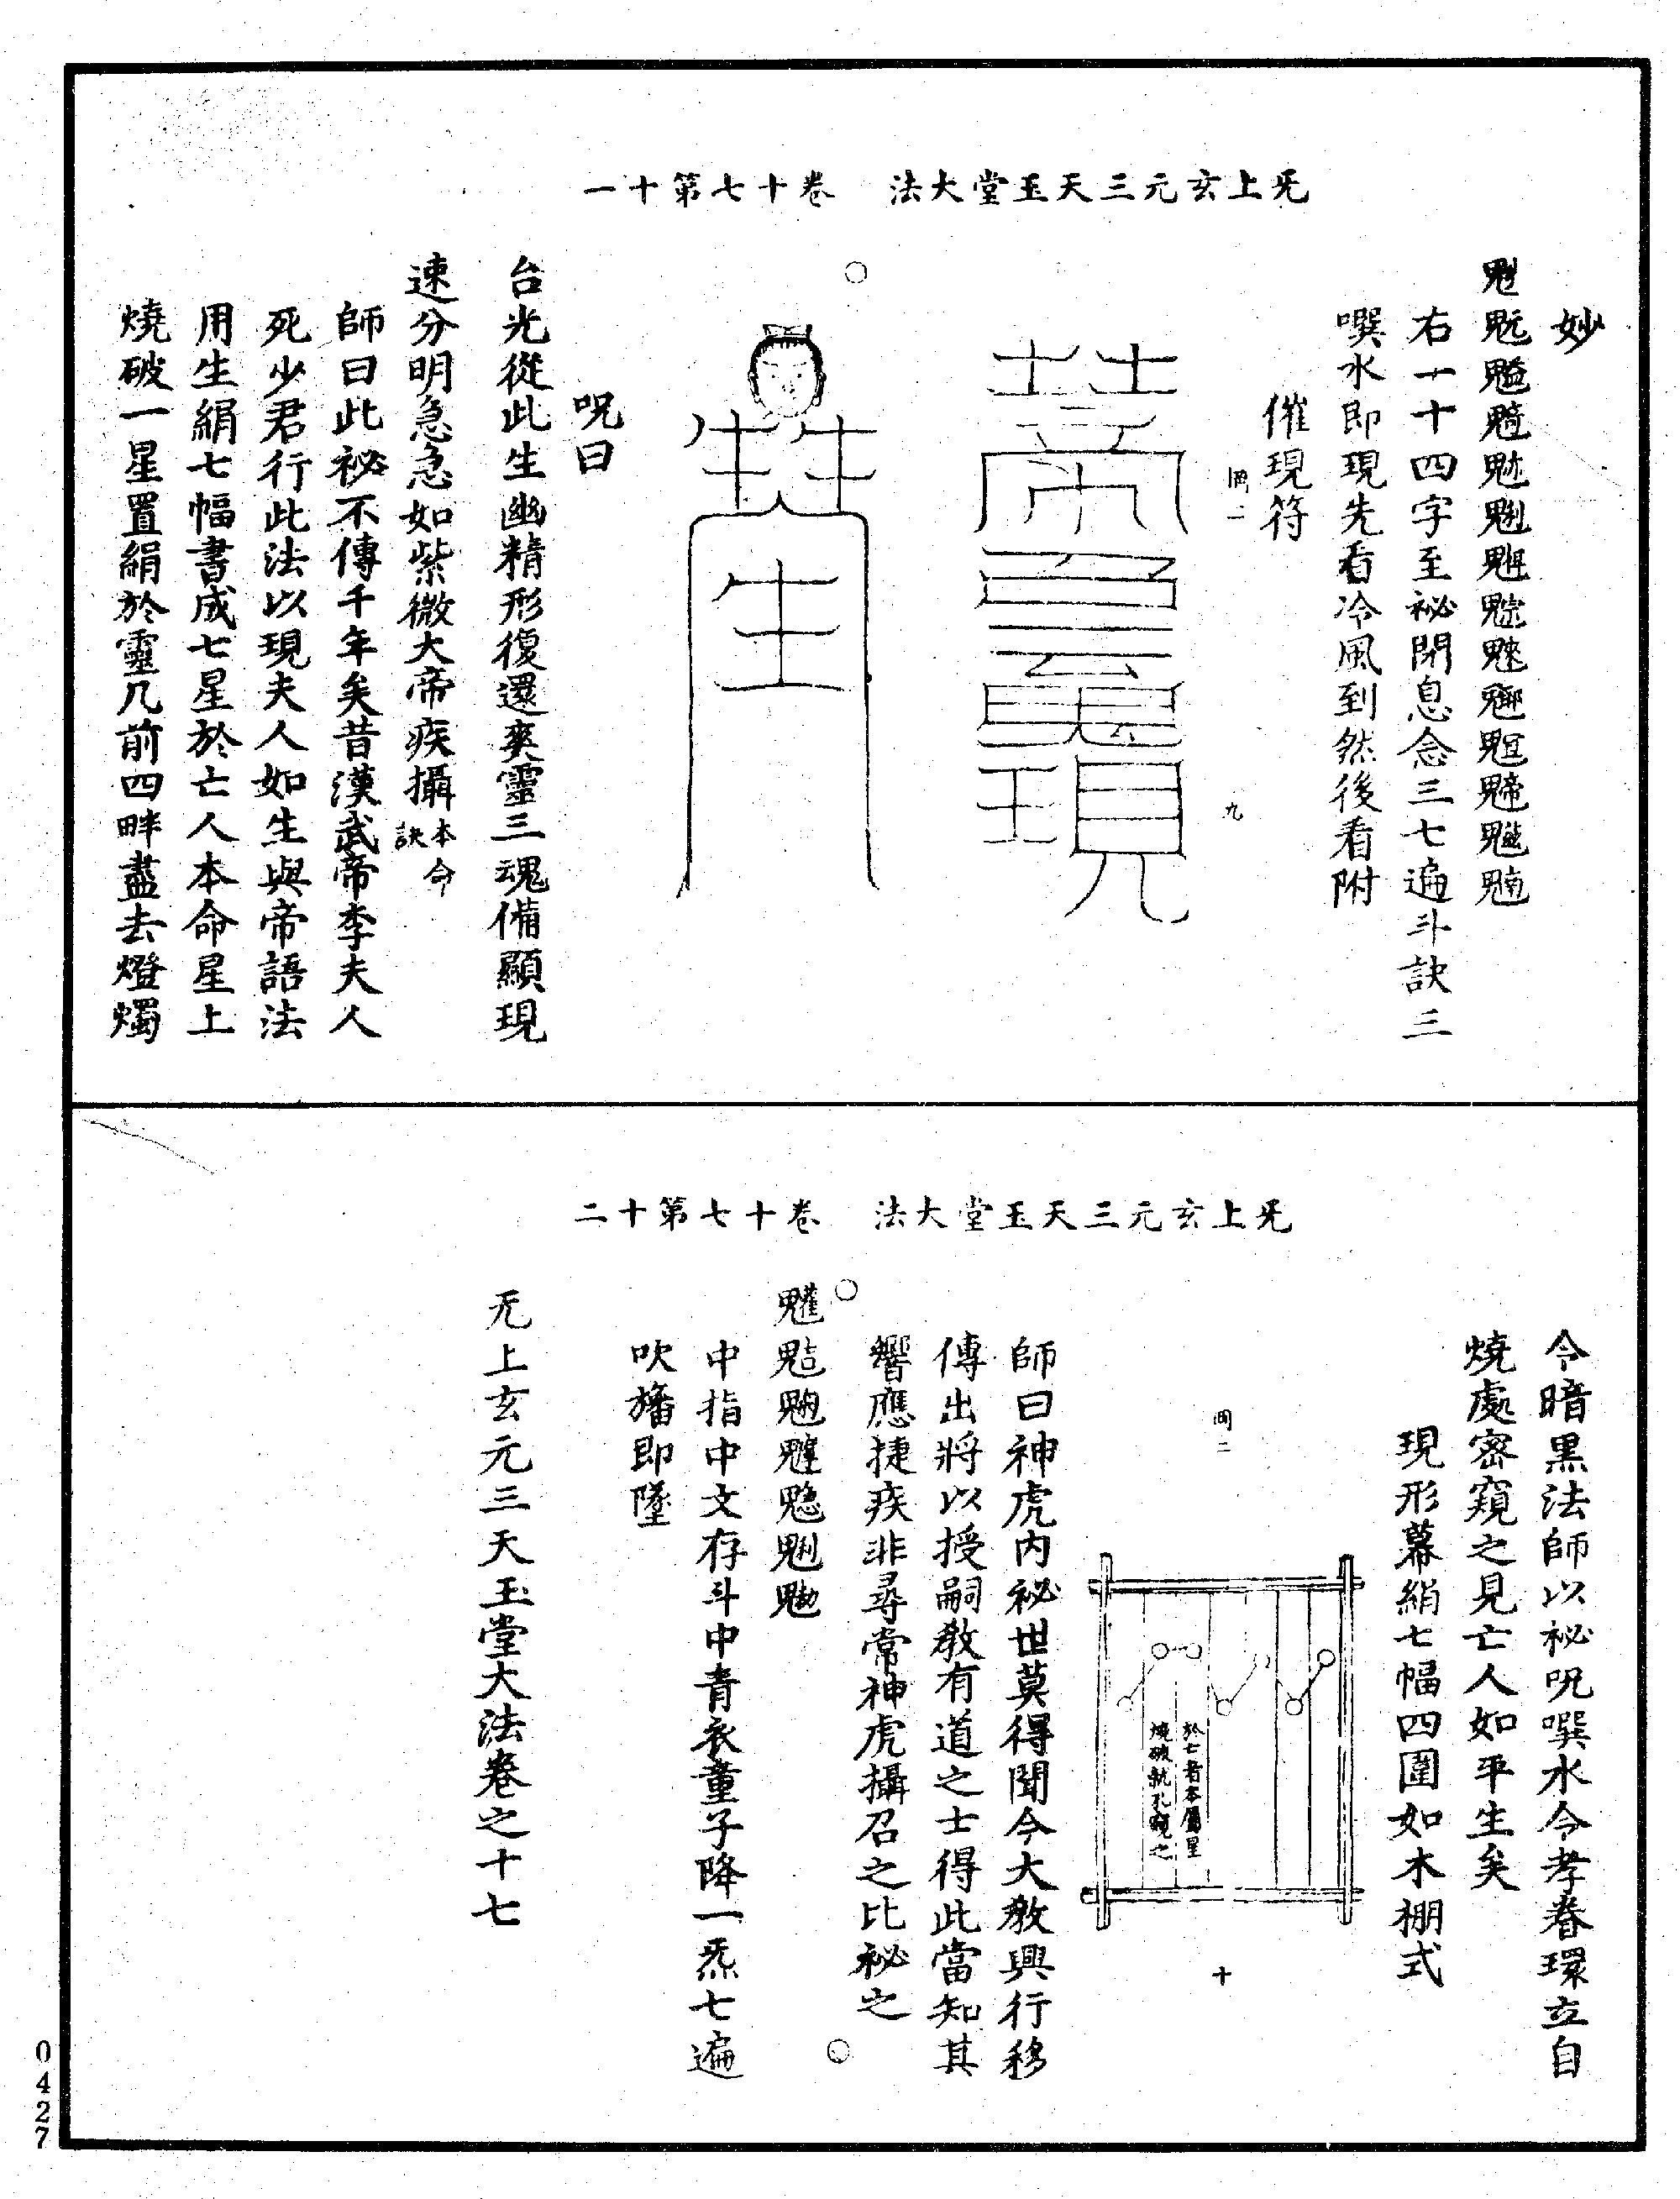 无上玄元三天玉堂大法 卷十七第十一
妙
右一十四字至祕閉息念三七遍斗訣三
噀水即現先看冷風到然後看附
催現符
岡二
九
呪曰
台光從此生幽精形復還爽靈三魂備顯現
速分明急急如紫微大帝疾攝本命訣
師曰此祕不傳千年矣昔漢武帝李夫人
死少君行此法以現夫人如生與帝語法
用生絹七幅書成七星於亡人本命星上
燒破一星置絹於靈几前四畔盡去燈燭
无上玄元三天玉堂大法 卷十七第十二
令暗黑法師以祕呪噀水令孝眷環立自
燒處密窺之見亡人如平生矣
現形幕絹七幅四圍如木棚式
於亡者本屬星
燒破就孔窺之
岡二
十
師曰神虎內祕世莫得聞今大教興行移
傳出將以授嗣教有道之士得此當知其
響應捷疾非尋常神虎攝召之比祕之
中指中文存斗中青衣童子降一炁七遍
吹旛即墜
无上玄元三天玉堂大法卷之十七
0427